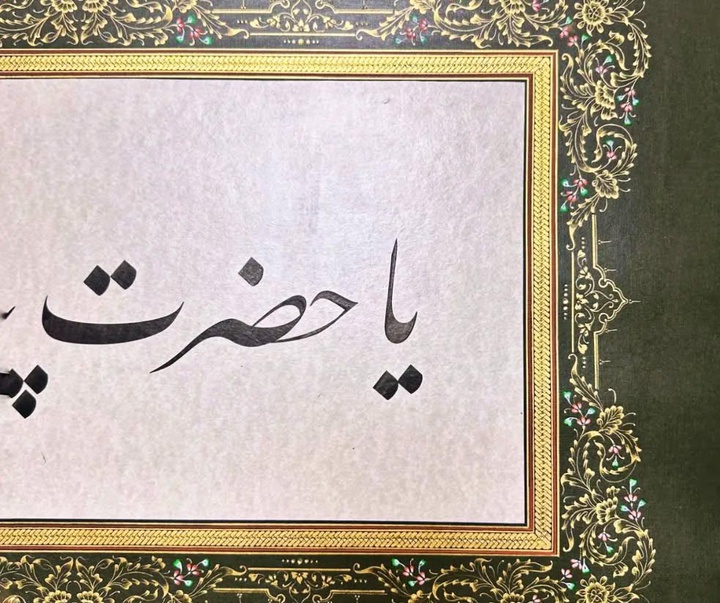 یا حضرت